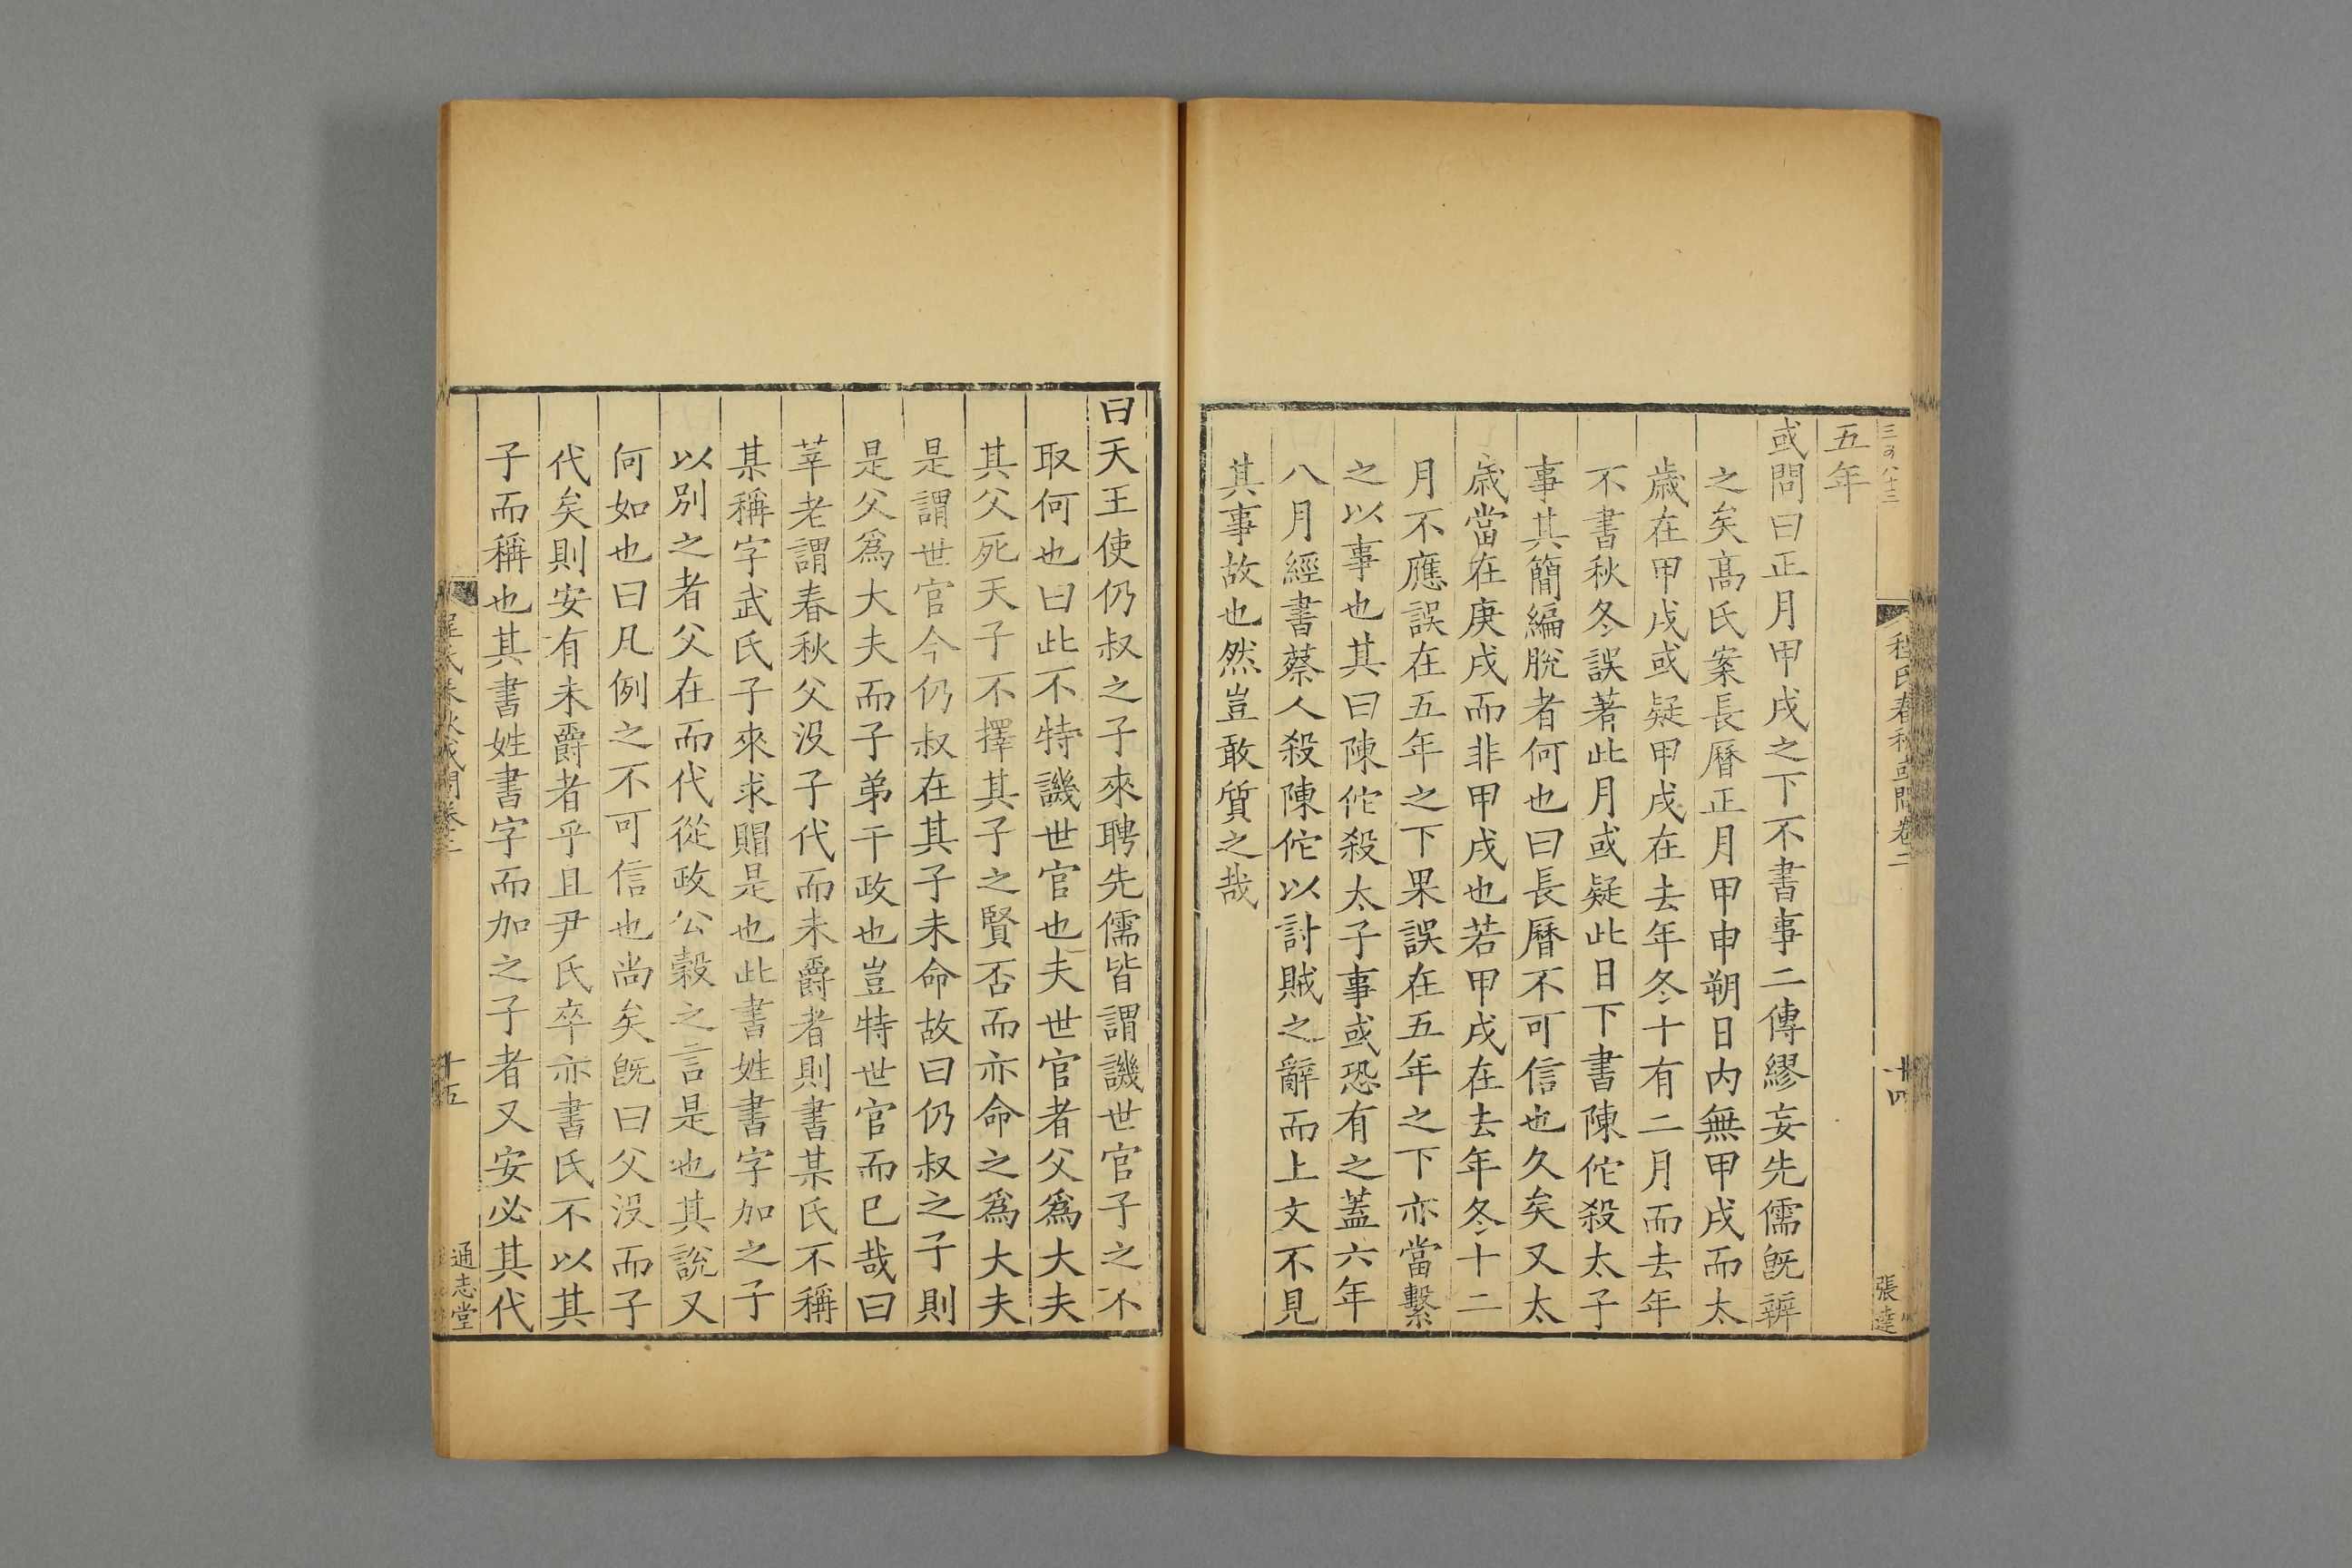 程氏春秋或問卷二
十四
張達
五年
或問曰正月甲戌之下不書事二傳繆妄先儒旣辨
之矣髙氏案長曆正月甲申朔日内無甲戌而太
歲在甲戌或疑甲戌在去年冬十有二月而去年
不書秋冬誤著此月或疑此日下書陳佗殺太子
事其簡編脫者何也曰長曆不可信也久矣又太
歲當在庚戌而非甲戌也若甲戌在去年冬十二
月不應誤在五年之下果誤在五年之下亦當繫
之以事也其曰陳佗殺太子事或恐有之蓋六年
八月經書蔡人殺陳佗以討賊之辭而上文不見
其事故也然豈敢質之哉
曰天王使仍叔之子來聘先儒皆謂譏世官子之不
取何也曰此不特譏世官也夫世官者父爲大夫
其父死天子不擇其子之賢否而亦命之爲大夫
是謂世官今仍叔在其子未命故曰仍叔之子則
是父爲大夫而子弟干政也豈特世官而已哉曰
莘老謂春秋父没子代而未爵者則書某氏不稱
某稱字武氏子來求賵是也此書姓書字加之子
以別之者父在而代從政公穀之言是也其說又
何如也曰凡例之不可信也尚矣旣曰父没而子
代矣則安有未爵者乎且尹氏卒亦書氏不以其
子而稱也其書姓書字而加之子者又安必其代
程氏春秋或問卷二
十五
通志堂